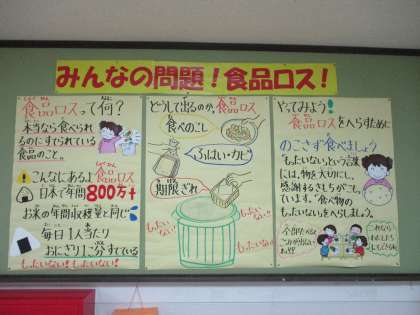 みんなの問題！食品ロス！
食品ロスって何？
本当なら食べられ
るのにすてられている
食品のこと。
こんなにあるよ食品ロス
日本で年間800万t
お米の年間収穫量と同じ
毎日1人当たり
おにぎり1〜2分すてている
もったいない！もったいない！
どうして出るのか、食品ロス
食べのこし
ふはい・カビ
期限ぎれ
もったいない！
もったいない！
もったいない！
もったいない！
やってみよう！
食品ロスをへらすために
のこさず食べましょう
「もったいない」という言葉
には、物を大切にし、
感謝するきもちがこもっ
ています。「食べ物の
もったいない」をへらしましょう。